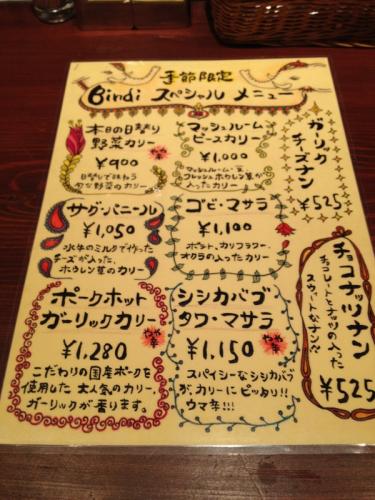 季節限定
Bindi スペシャル メニュー
本日の日替り
野菜カリー
¥900
日替りで味わう
旬な野菜のカリー
マッシュルーム
ピースカリー
¥1,000
マッシュルーム・豆、
フレッシュホウレン草が
入ったカリー
ガーリック
チーズナン
¥525
サグ・パニール
¥1,050
水牛のミルクで作った
チーズが入った、
ホウレン草のカリー
ゴビ・マサラ
¥1,100
ポテト、カリフラワー、
オクラの入ったカリー
チョコナッツナン
チョコレートとナッツの入った
スウィートなナン
¥525
ポークホット
ガーリックカリー
¥1,280
やや辛
こだわりの国産ポークを
使用した 大人気のカリー。
ガーリックが香ります。
シシカバブ
タワ・マサラ
¥1,150
やや辛
スパイシーなシシカバブ
が、カリーにピッタリ!!
ウマ辛!!!